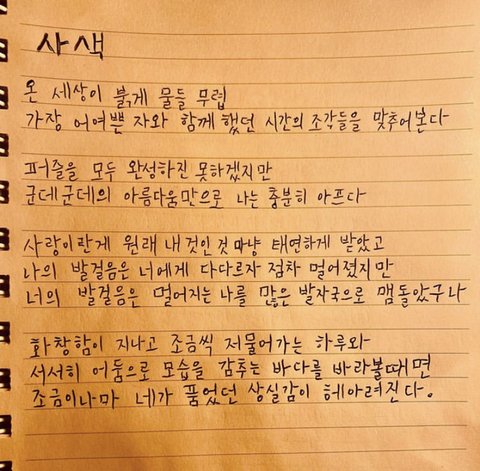 사색
온 세상이 붉게 물들 무렵
가장 어여쁜 자와 함께 했던 시간의 조각들을 맞추어본다
퍼즐을 모두 완성하진 못하겠지만
군데군데의 아름다움만으로 나는 충분히 아프다
사랑이란게 원래 내것인것 마냥 태연하게 받았고
나의 발걸음은 너에게 다다르자 점차 멀어졌지만
너의 발걸음은 멀어지는 나를 많은 발자국으로 맴돌았구나
화창함이 지나고 조금씩 저물어가는 하루와
서서히 어둠으로 모습을 감추는 바다를 바라볼때면
조금이나마 네가 품었던 상실감이 헤아려진다.